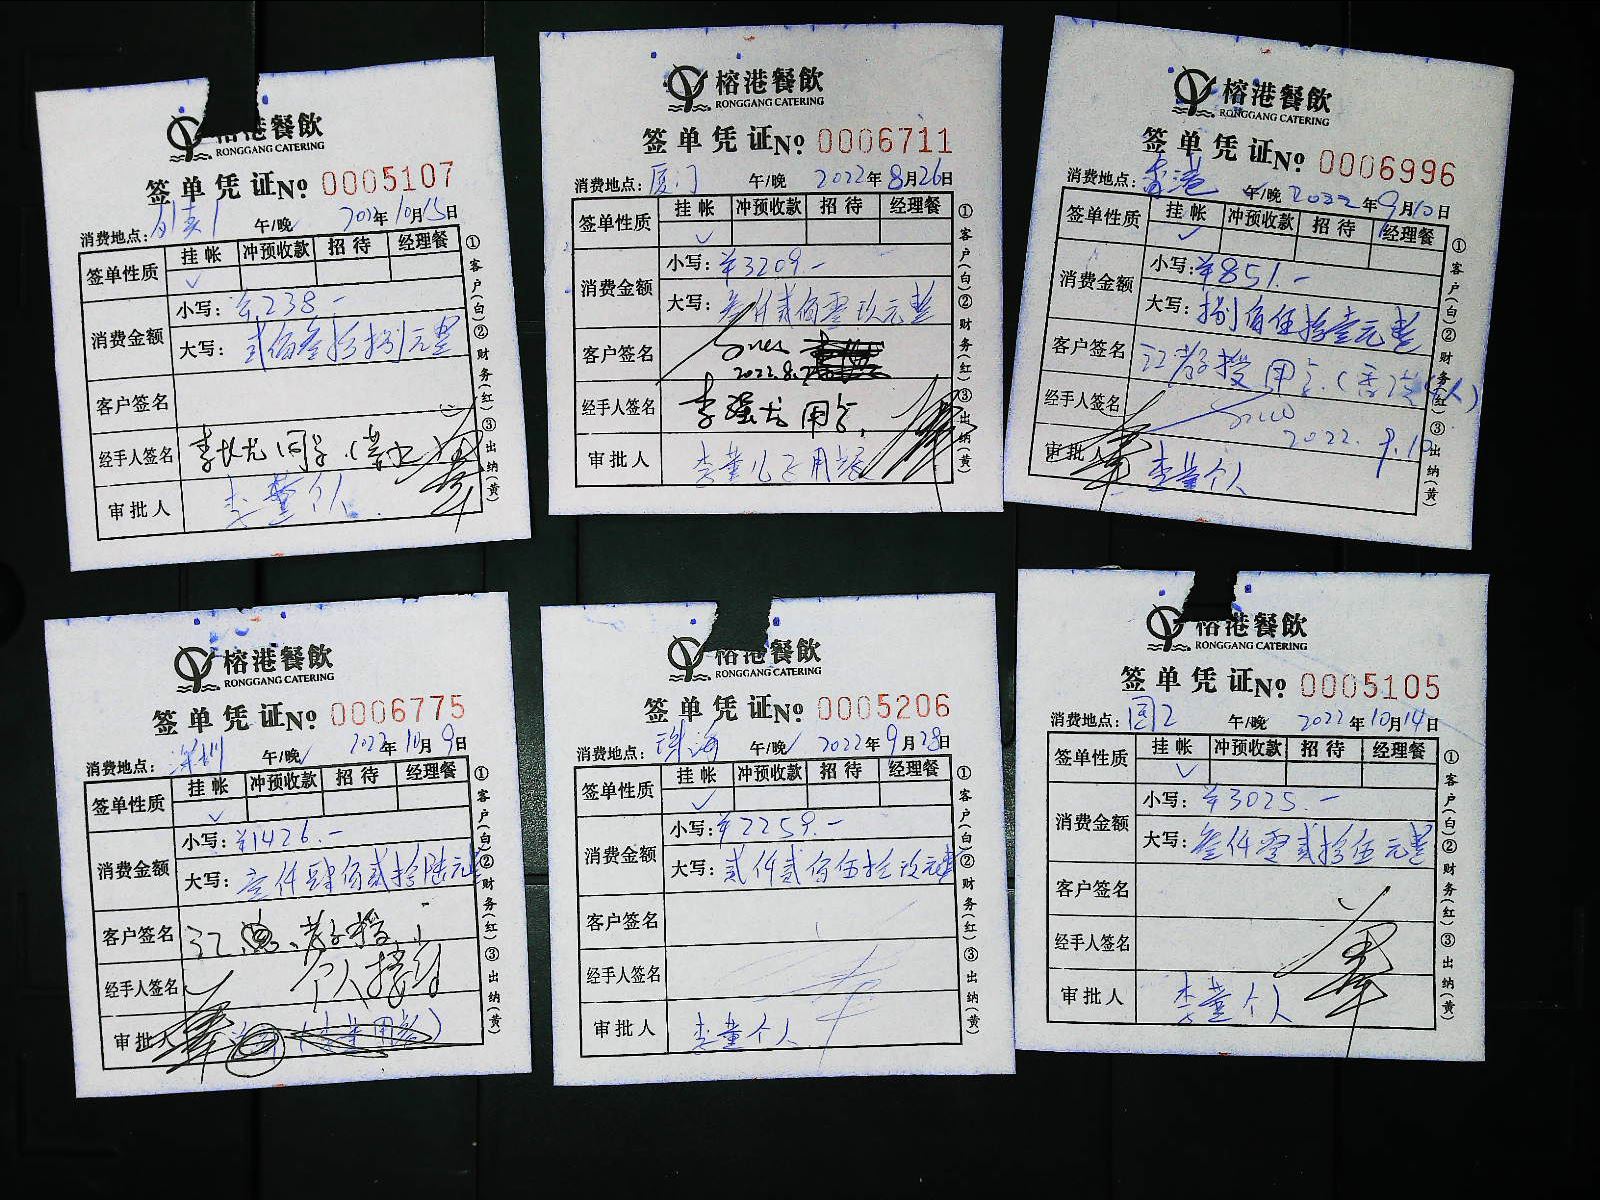 榕港餐飲
RONGGANG CATERING
签单凭证№ 0005107
消费地点: 午/晚 2022年10月15日
签单性质 挂帐 冲预收款 招待 经理餐
✓
消费金额 小写: ¥238.-
大写: 贰佰叁拾捌元整
客户签名
经手人签名
审批人 李董个人
①客户(白)②财务(红)③出纳(黄)
榕港餐飲
RONGGANG CATERING
签单凭证№ 0006711
消费地点: 厦门 午/晚 2022年8月26日
签单性质 挂帐 冲预收款 招待 经理餐
✓
消费金额 小写: ¥3209.-
大写: 叁仟贰佰零玖元整
客户签名
2022.8.2
经手人签名 用
审批人 李董
①客户(白)②财务(红)③出纳(黄)
榕港餐飲
RONGGANG CATERING
签单凭证№ 0006996
消费地点: 香港 午/晚 2022年9月10日
签单性质 挂帐 冲预收款 招待 经理餐
✓
消费金额 小写: ¥851.-
大写: 捌佰伍拾壹元整
客户签名 江教授用
经手人签名
2022.9.1
审批人 李董个人
①客户(白)②财务(红)③出纳(黄)
榕港餐飲
RONGGANG CATERING
签单凭证№ 0006775
消费地点: 深圳 午/晚✓ 2022年10月9日
签单性质 挂帐 冲预收款 招待 经理餐
✓
消费金额 小写: ¥1426.-
大写: 壹仟肆佰贰拾陆元
客户签名 江 教授
经手人签名 个人接待
审批人
①客户(白)②财务(红)③出纳(黄)
榕港餐飲
RONGGANG CATERING
签单凭证№ 0005206
消费地点: 珠海 午/晚✓ 2022年9月28日
签单性质 挂帐 冲预收款 招待 经理餐
✓
消费金额 小写: ¥2259.-
大写: 贰仟贰佰伍拾玖元整
客户签名
经手人签名
审批人 李董个人
①客户(白)②财务(红)③出纳(黄)
榕港餐飲
RONGGANG CATERING
签单凭证№ 0005105
消费地点: 园2 午/晚 2022年10月14日
签单性质 挂帐 冲预收款 招待 经理餐
✓
消费金额 小写: ¥3025.-
大写: 叁仟零贰拾伍元整
客户签名
经手人签名
审批人 李董个人
①客户(白)②财务(红)③出纳(黄)